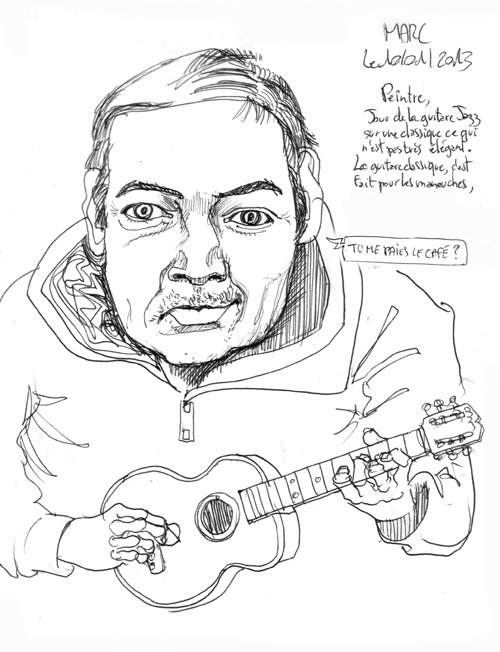 MARC
Le 10/01/2013
Peintre,
Joue de la guitare Jazz
sur une classique ce qui
n'est pas très élégant.
La guitare classique, c'est
fait pour les manouches,
TU ME PAIES LE CAFÉ ?